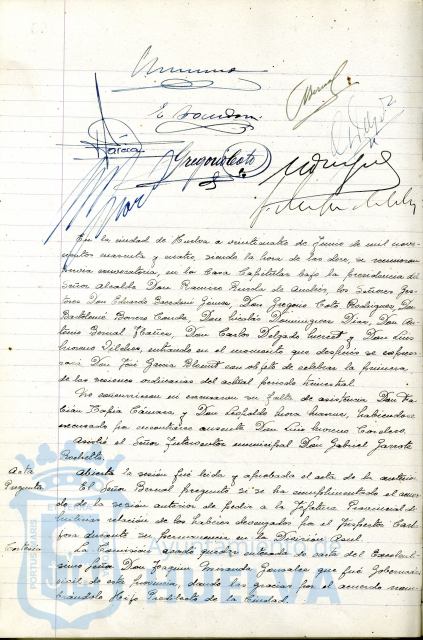 Gregorio Coto
En la ciudad de Huelva a veinticuatro de Junio de mil nove-
cientos cuarenta y cuatro, siendo la hora de las doce, se reunieron
previa convocatoria, en la Casa Capitular bajo la presidencia del
Señor Alcalde Don Ramiro los Señores Ges-
tores Don Eduardo Gómez, Don Gregorio Coto Rodriguez, Don
Bartolomé Conde, Don Nicolás Dominguez Diaz, Don An-
tonio Bernal Ibañez, Don Carlos Delgado y Don Luis
Moreno Vilches, entrando en el momento que después se expresa-
rá Don José Garcia con objeto de celebrar la primera
de las sesiones ordinarias del actual periodo trimestral.
No concurrieron ni excusaron su falta de asistencia Don Fa-
bián Tapia Cámara y Don Leopoldo habiéndose
excusado por encontrarse ausente Don Luis Moreno Cordero.
Asistió el Señor Interventor municipal Don Gabriel Garrote
Acta
Abierta la sesión fué leida y aprobada el acta de la anterior.
Pregunta
El Señor Bernal preguntó si se ha cumplimentado el acuer-
do de la sesión anterior de pedir a la Jefatura Provincial de
Milicias relación de los haberes devengados por el Inspector
durante su permanencia en la División Azul.
Cortesía
La Comisión acordó quedar enterada de carta del Excelentí-
simo Señor Don Joaquin Miranda Gonzalez que fué Goberna-
dor civil de esta provincia, dando las gracias por el acuerdo nom-
brándole Hijo Predilecto de la Ciudad.
Ayuntamiento de
HUELVA